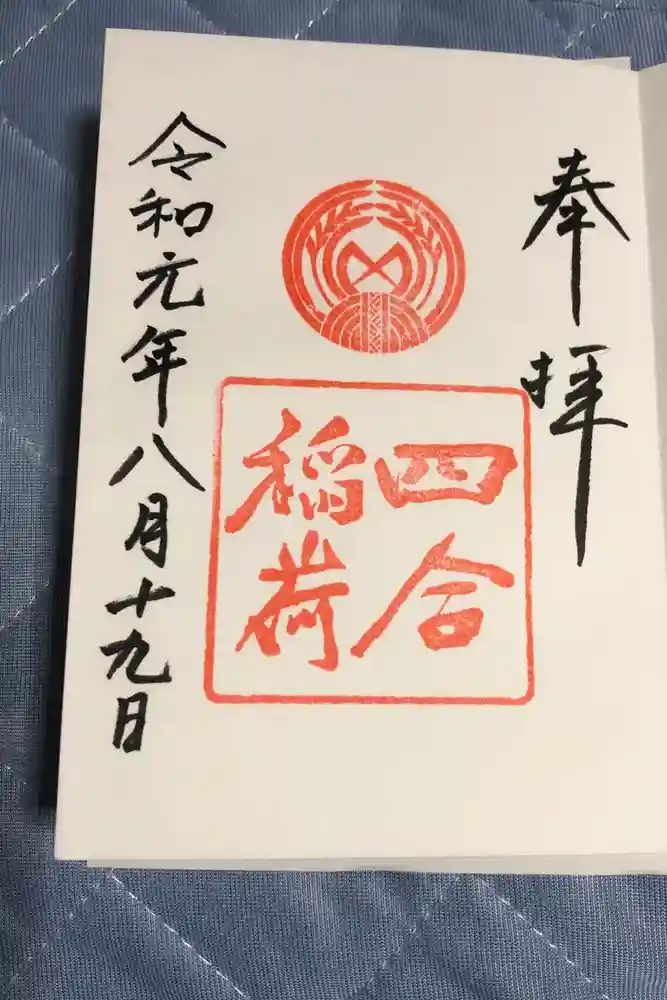 奉拝
四合
稲荷
令和元年八月十九日